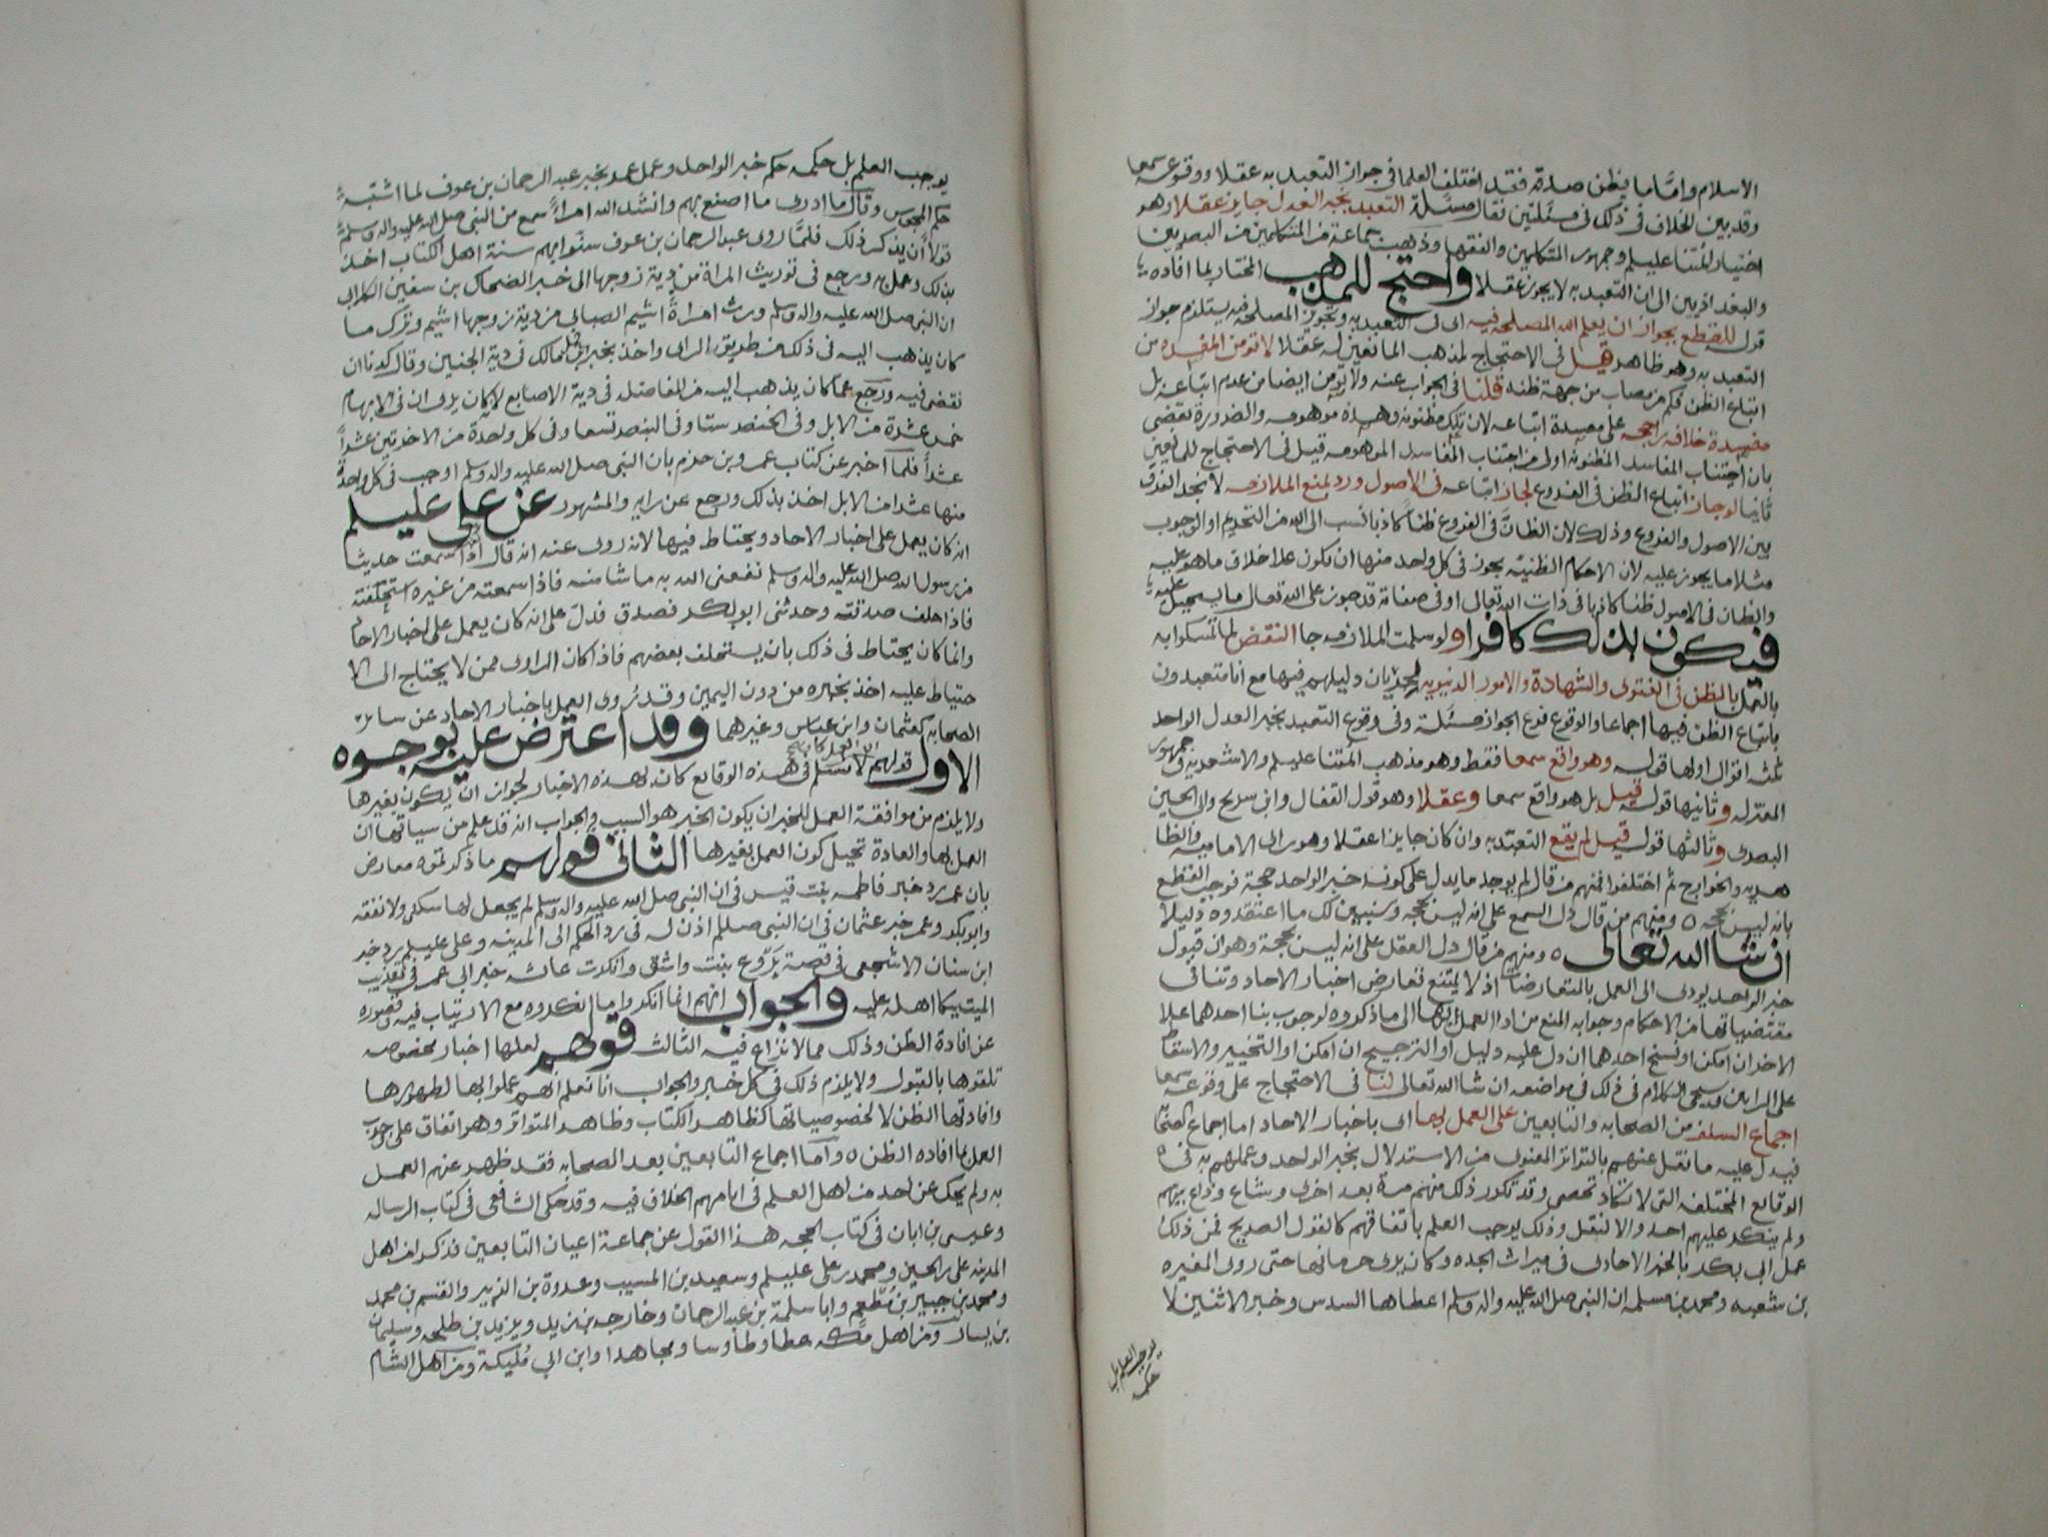 الاسلام واما ما يظن صدقه فقد اختلف العلما في جواز التعبد به عقلا ووقوعه سمعا
وقد بين الخلاف في ذلك في مسئلتين فقال مسئلة التعبد بخبر العدل جايز عقلا وهو
اختيار ائمتنا عليهلم وجمهور المتكلمين والفقها وذهب جماعة من المتكلمين من البصريين
والبغداديين الى ان التعبد به لا يجوز عقلا واحتج للمذهب المختار بما افاده
قوله للقطع بجواز ان يعلم الله المصلحه فيه اي في التعبد به وتجويز المصلحة فيه يستلزم جواز
التعبد به وهو ظاهر قيل في الاحتجاج لمذهب المانعين له عقلا لا تومن المفسده من
اتباع الظن فكم من مصاب من جهة ظنه قلنا في الجواب عنه ولا يؤمن ايضا من عدم اتباعه بل
مفسدة خلافه راجحه على مفسدة اتباعه لان تلك مظنونه وهذه موهومه والضرورة تقضي
بان اجتناب المفاسد المظنونه اولى من اجتناب المفاسد الموهومه قيل في الاحتجاج للمانعين
ثانيا لو جاز اتباع الظن في الفروع لجاز اتباعه في الاصول ورد بمنع الملازمه لانجد الفرق
بين الاصول والفروع وذلك لان الظان في الفروع ظنا كاذبا نسب الى الله من التحريم او الوجوب
مثلا ما يجوز عليه لان الاحكام الظنيه يجوز في كل واحد منها ان تكون علا خلاف ما هو عليه
والظان في الاصول ظنا كاذبا في ذات الله تعالى او في صفاته قد جوز على الله تعالى ما يستحيل عليه
فيكون بذلك كافرا و لو سلمت الملازمه جا النقض لما تمسكوا به
بالعمل بالظن في الفتوى والشهادة والامور الدنيويه لجريان دليلهم فيها مع انا متعبدون
باتباع الظن فيها اجماعا والوقوع فرع الجواز مسئلة وفي وقوع التعبد بخبر العدل الواحد
ثلثه اقوال اولها قوله وهو واقع سمعا فقط وهو مذهب ائمتنا عليهلم والاشعريه وجمهور
المعتزله وثانيها قوله قيل بل هو واقع سمعا وعقلا وهو قول القفال وابن سريج وابي الحسين
البصري وثالثها قوله قيل لم يقع التعبد به وان كان جايزا عقلا وهو راي الاماميه والظا
هريه والخوارج ثم اختلفوا فمنهم من قال لم يوجد ما يدل على كونه خبر الواحد حجة فوجب القطع
بانه ليس بحجه ٥ ومنهم من قال دل السمع على انه ليس بحجه وسنبين لك ما اعتقدوه دليلا
ان شا الله تعالى ٥ ومنهم من قال دل العقل على انه ليس بحجة وهو ان قبول
خبر الواحد يودي الى العمل بالمتعارضات اذ لا يمتنع تعارض اخبار الاحاد وتنافي
مقتضياتها من الاحكام وجوابه المنع من ادا العمل بها الى ما ذكروه لوجوب بنا احدهما علا
الاخر ان امكن او نسخ احدهما ان دل عليه دليل او الترجيح ان امكن او التخيير والاسقاط
على الرايين وسيجى الكلام في ذلك في مواضعه ان شا الله تعالى لنا في الاحتجاج على وقوعه سمعا
اجماع السلف من الصحابه والتابعين على العمل بها اى باخبار الاحاد اما اجماع الصحابة
فيدل عليه ما نقل عنهم بالتواتر المعنوى من الاستدلال بخبر الواحد وعملهم به في
الوقايع المختلفه التى لا تكاد تحصى وقد تكرر ذلك منهم مرة بعد اخرى وشاع وذاع بينهم
ولم ينكر عليهم احد والا لنقل وذلك يوجب العلم باتفاقهم كالقول الصريح فمن ذلك
عمل ابي بكر بالخبر الاحادى في ميراث الجده وكان يرى حرمانها حتى روى المغيره
بن شعبه ومحمد بن مسلمه ان النبي صلى الله عليه واله وسلم اعطاها السدس وخبر الاثنين لا
يوجب العلم بل
حكمه
يوجب العلم بل حكمه حكم خبر الواحد وعمل عمر بخبر عبد الرحمان بن عوف لما اشتبه
حكم المجوس وقال ما ادرى ما اصنع بهم وانشد الله امراءً سمع من النبي صلى الله عليه واله وسلم
قولا ان يذكر ذلك فلما روى عبد الرحمان بن عوف سنوا بهم سنة اهل الكتاب اخذ
بذلك وعمل به ورجع في توريث المراة من دية زوجها الى خبر الضحاك بن سفين الكلابي
ان النبي صلى الله عليه واله وسلم ورث امراة اشيم الضبابي من دية زوجها اشيم وترك ما
كان يذهب اليه في ذلك من طريق الراى واخذ بخبر حمل بن مالك في دية الجنين وقال كدنا ان
نقضي فيه ورجع عما كان يذهب اليه من المفاضله في دية الاصابع لا كان يرى ان في الابهام
خمس عشرة من الابل وفي الخنصر ستا وفي البنصر تسعا وفي كل واحدة من الاخريتين عشراً
عشراً فلما اخبر عن كتاب عمرو بن حزم بان النبي صلى الله عليه واله وسلم اوجب في كل واحدة
منها عشرا من الابل اخذ بذلك ورجع عن رايه والمشهور عن علي عليلم
انه كان يعمل على اخبار الاحاد ويحتاط فيها لانه روى عنه انه قال اذا سمعت حديثا
من رسول الله صلى الله عليه واله وسلم نفعني الله به ما شا منه فاذا سمعته من غيره استحلفته
فاذا حلف صدقته وحدثني ابو بكر فصدق فدل على انه كان يعمل على اخبار الاحاد
وانما كان يحتاط في ذلك بان يستحلف بعضهم فاذا كان الراوى ممن لا يحتاج الى الا
حتياط عليه اخذ بخبره من دون اليمين وقد روى العمل باخبار الاحاد عن ساير
الصحابه كعثمان وابن عباس وغيرهما وقد اعترض عليه بوجوه
الاول قولهم لا نسلم ان العمل في هذه الوقايع كان بهذه الاخبار لجواز ان يكون بغيرها
ولا يلزم من موافقة العمل للخبر ان يكون الخبر هو السبب والجواب انه قد علم من سياقها ان
العمل بها والعادة تحيل كون العمل بغيرها الثاني قولهم ما ذكرتموه معارض
بان عمر رد خبر فاطمه بنت قيس في ان النبي صلى الله عليه واله وسلم لم يجعل لها سكنى ولا نفقه
وابو بكر وعمر خبر عثمان في ان النبي صلسلم اذن له في رد الحكم الى المدينه وعلي عليلم رد خبر
ابن سنان الاشجعي في قصة بروع بنت واشق وانكرت عائشه خبر ابن عمر في تعذيب
الميت ببكا اهله عليه والجواب انهم انما انكروا ما انكروه مع الارتياب فيه وقصوره
عن افادة الظن وذلك مما لا نزاع فيه الثالث قولهم لعلها اخبار مخصوصه
تلقوها بالقبول ولا يلزم ذلك في كل خبر والجواب انا نعلم انهم عملوا بها لظهورها
وافادتها الظن لا لخصوصياتها كظاهر الكتاب وظاهر المتواتر وهو اتفاق على وجوب
العمل بما افاده الظن ٥ واما اجماع التابعين بعد الصحابه فقد ظهر عنهم العمل
به ولم يحك عن احد من اهل العلم في ايامهم الخلاف فيه وقد حكى الشافعي في كتاب الرساله
وعيسى بن ابان في كتاب الحجه هذا القول عن جماعة اعيان التابعين فذكر من اهل
المدينه علي بن الحسين ومحمد بن علي عليلم وسعيد بن المسيب وعروة بن الزبير والقسم بن محمد
ومحمد بن جبير بن مطعم وابا سلمة بن عبد الرحمان وخارجه بن زيد ويزيد بن طلحه وسليمان
بن يسار ومن اهل مكه عطا وطاوسا ومجاهدا وابن ابي مليكة ومن اهل الشام